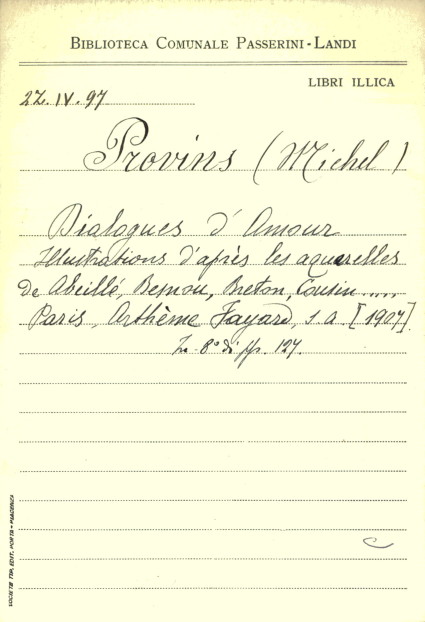 BIBLIOTECA COMUNALE PASSERINI-LANDI
LIBRI ILLICA
2Z.IV.97
Provins (Michel)
Dialogues d'Amour
Illustrations d'après les aquarelles
de Abeillé, Besnou, Breton, Cousin.....
Paris, Arthème Fayard, s.a. [1907]
In 8° di pp. 127.
SOCIETÀ TIP. EDIT. PORTA - PIACENZA